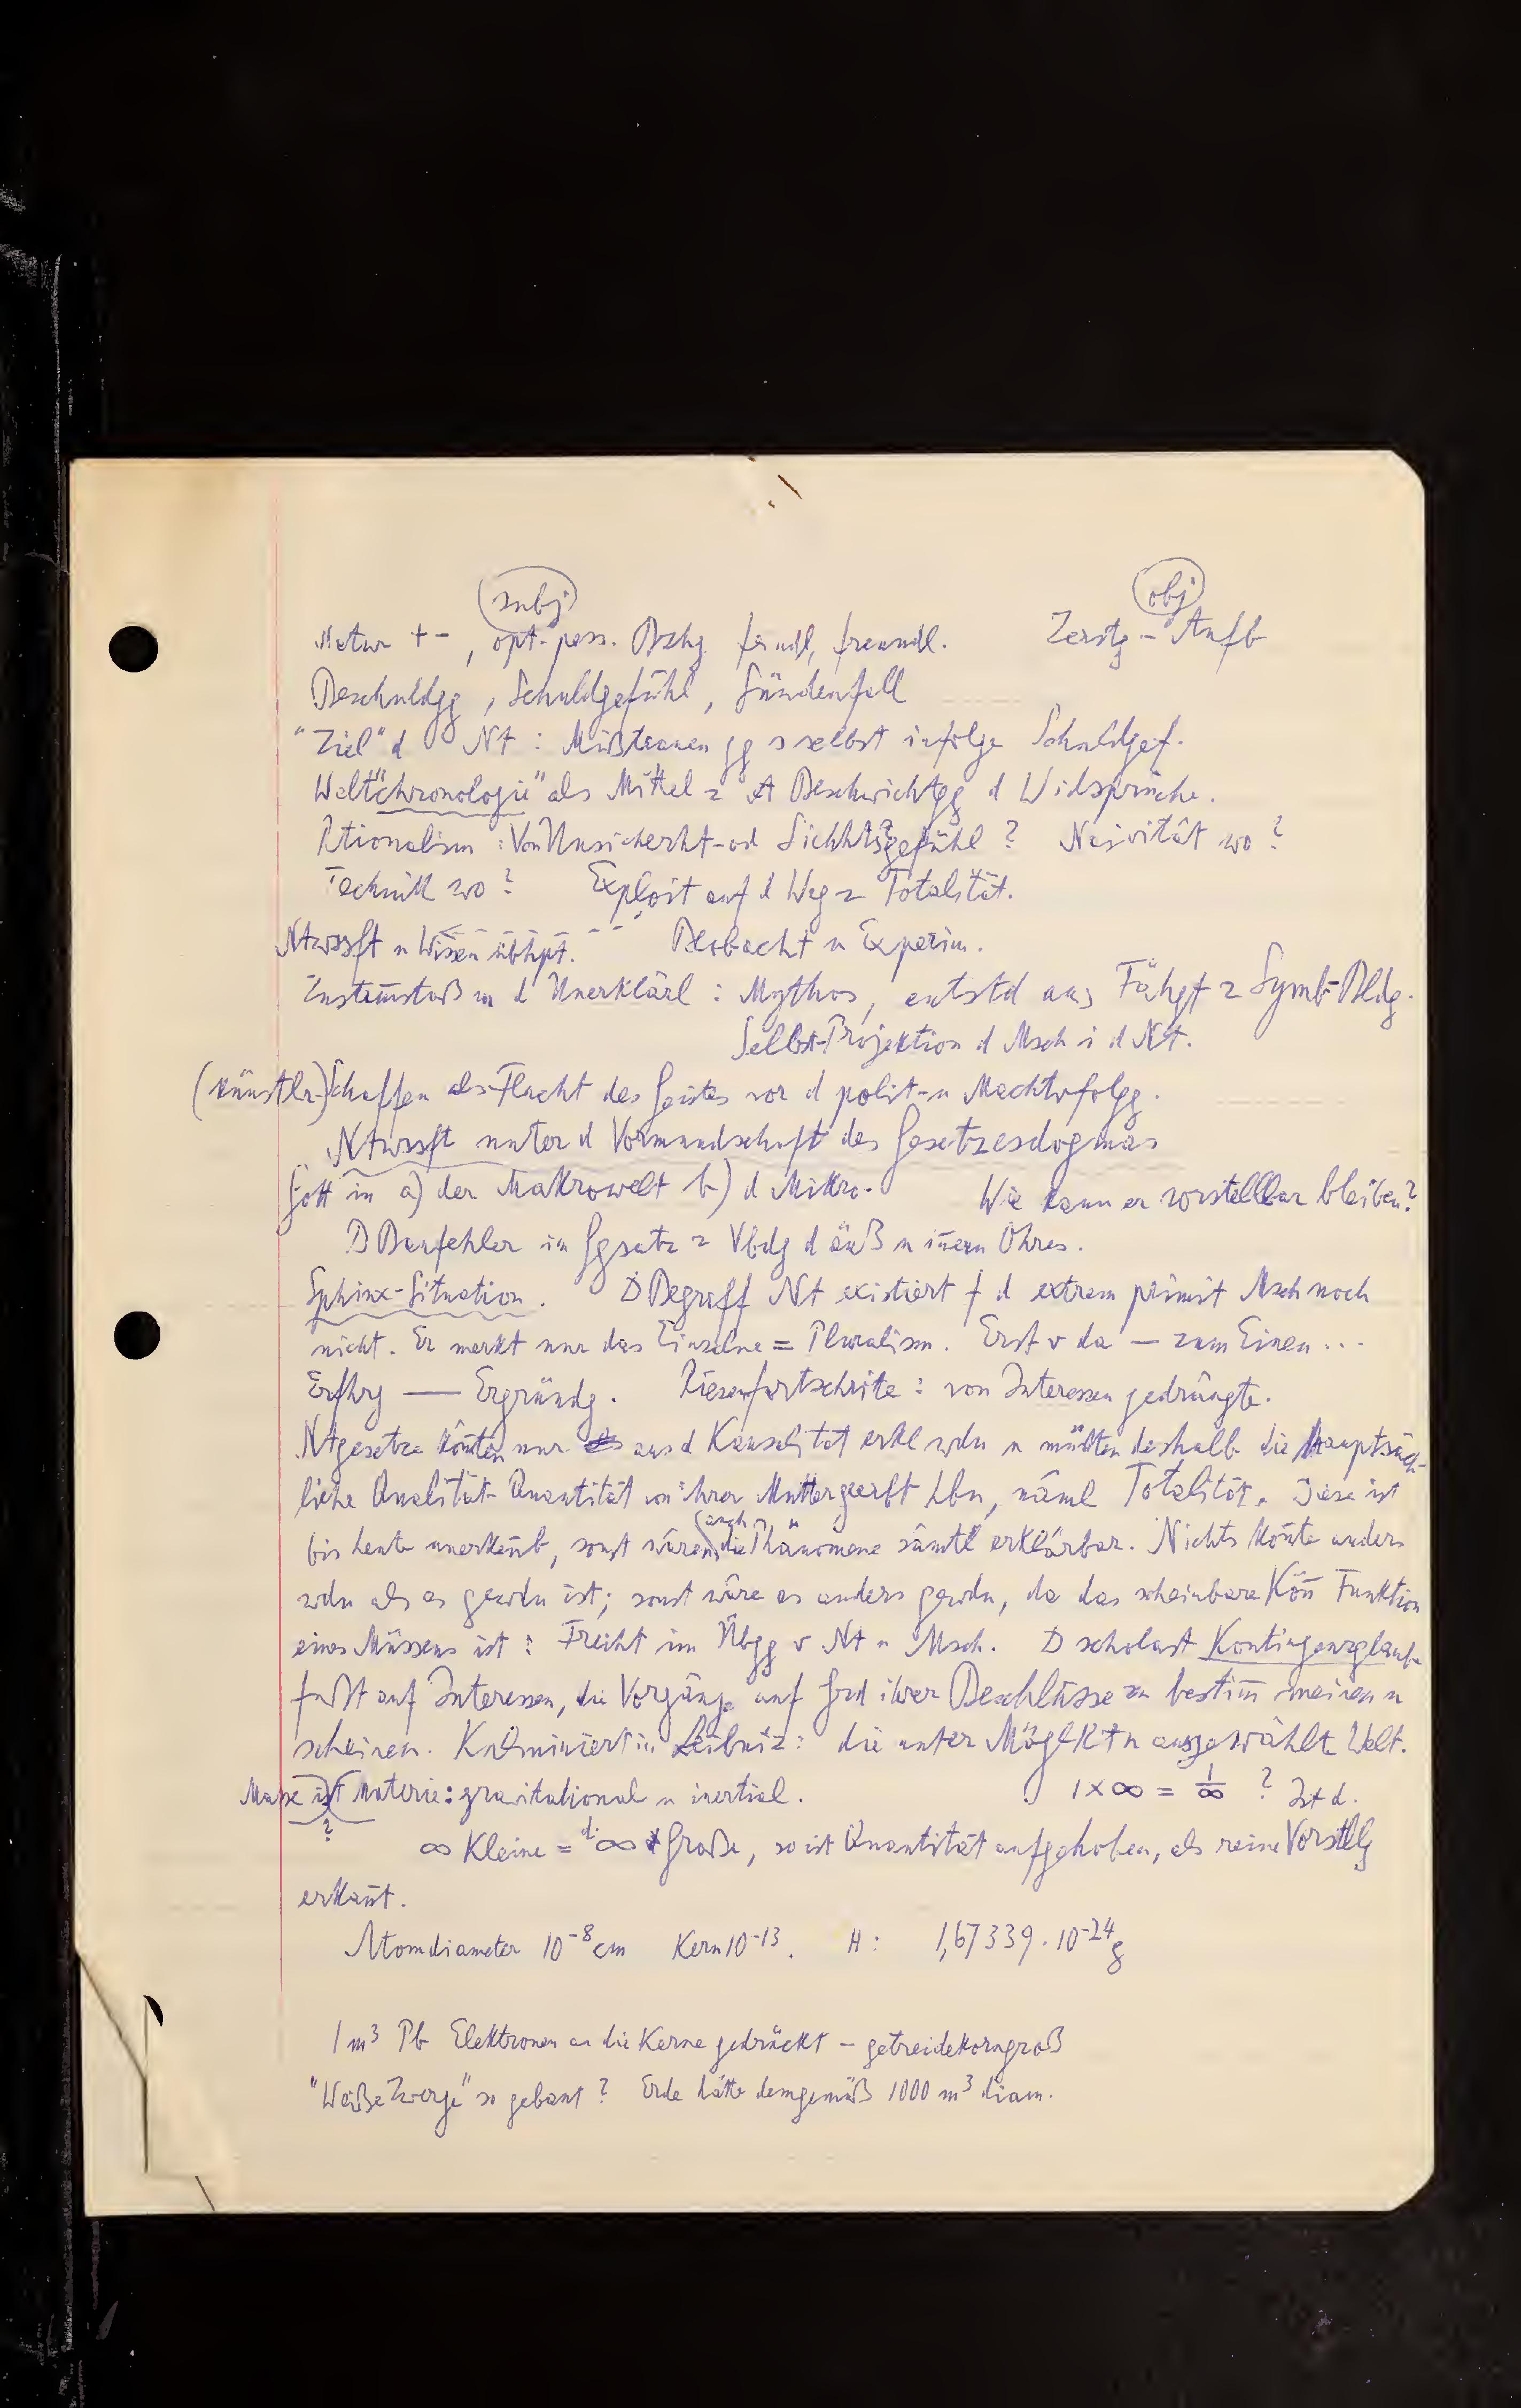 subj obj
Natur + - , opt.- pess. Bzhg feindl, freundl. Zerstg - Aufb
Beschuldgg , Schuldgefühl , Sündenfall
"Ziel" d Nt : Mißtrauen gg s selbst infolge Schuldgef.
Welt"chronologie" als Mittel z Beschwichtgg d Widsprüche.
Rtionalism : Von Unsicherht- od Sichhtsgefühl ? Naivität wo ?
Technik wo ? Exploit auf d Weg z Totalität.
Ntwssft u Wissen übhpt. Beobacht u Experim.
Zustimstoß d Unerklärl : Mythos, entstd aus Fähgt z Symb-Bldg.
Selbst-Projektion d Msch i d Nt.
(künstlr-)Schaffen als Flucht des Geistes vor d polit-n Machtvfolgg.
Ntwssft unter d Vormundschaft des Gesetzesdogmas
Gott in a) der Makrowelt b) d Mikro- Wie kann er vorstellbar bleiben?
D Baufehler im Ggsatz z Vbdg d äuß u inern Ohres.
Sphinx-Situation. D Begriff Nt existiert f d extrem primit Msch noch
nicht. Er merkt nur das Einzelne = Pluralism. Erst v da — zum Einen ...
Erfhrg — Ergründg. Riesenfortschrite : von Interessen gedrängte.
Ntgesetze könten nur aus d Kausalität erkl wdn u müßten deshalb die hauptsäch-
liche Qualität-Quantität von ihrer Mutter hbn, näml Totalität. Diese ist
bis heute unerkant, sonst wären (auch) die "Phänomene" sämtl erklärbar. Nichts könte anders
wdn als es gewdn ist; sonst wäre es anders gewdn, da das scheinbare Kön Funktion
eines Müssens ist : Freiht im Übgg v Nt u Msch. D scholast Kontingenzglaube
fußt auf Interessen, die Vorgänge auf Grd ihrer Beschlüsse zu bestim meinen u
scheinen. Kulminiert in Leibniz : die unter Möglktn ausgewählte Welt.
Masse ist Materie : gravitational u inertial. 1 × ∞ = 1/∞ ? Ist d.
?
∞ Kleine = d. ∞ Große, so ist Quantität aufgehoben, als reine Vorstllg
erkant.
Atomdiameter 10⁻⁸ cm Kern 10⁻¹³. H : 1,67339 . 10⁻²⁴ g
1 m³ Pb Elektronen an die Kerne gedrückt - getreidekorngroß
"Weiße Zwerge" so gebaut ? Erde hätte demgemäß 1000 m³ diam.